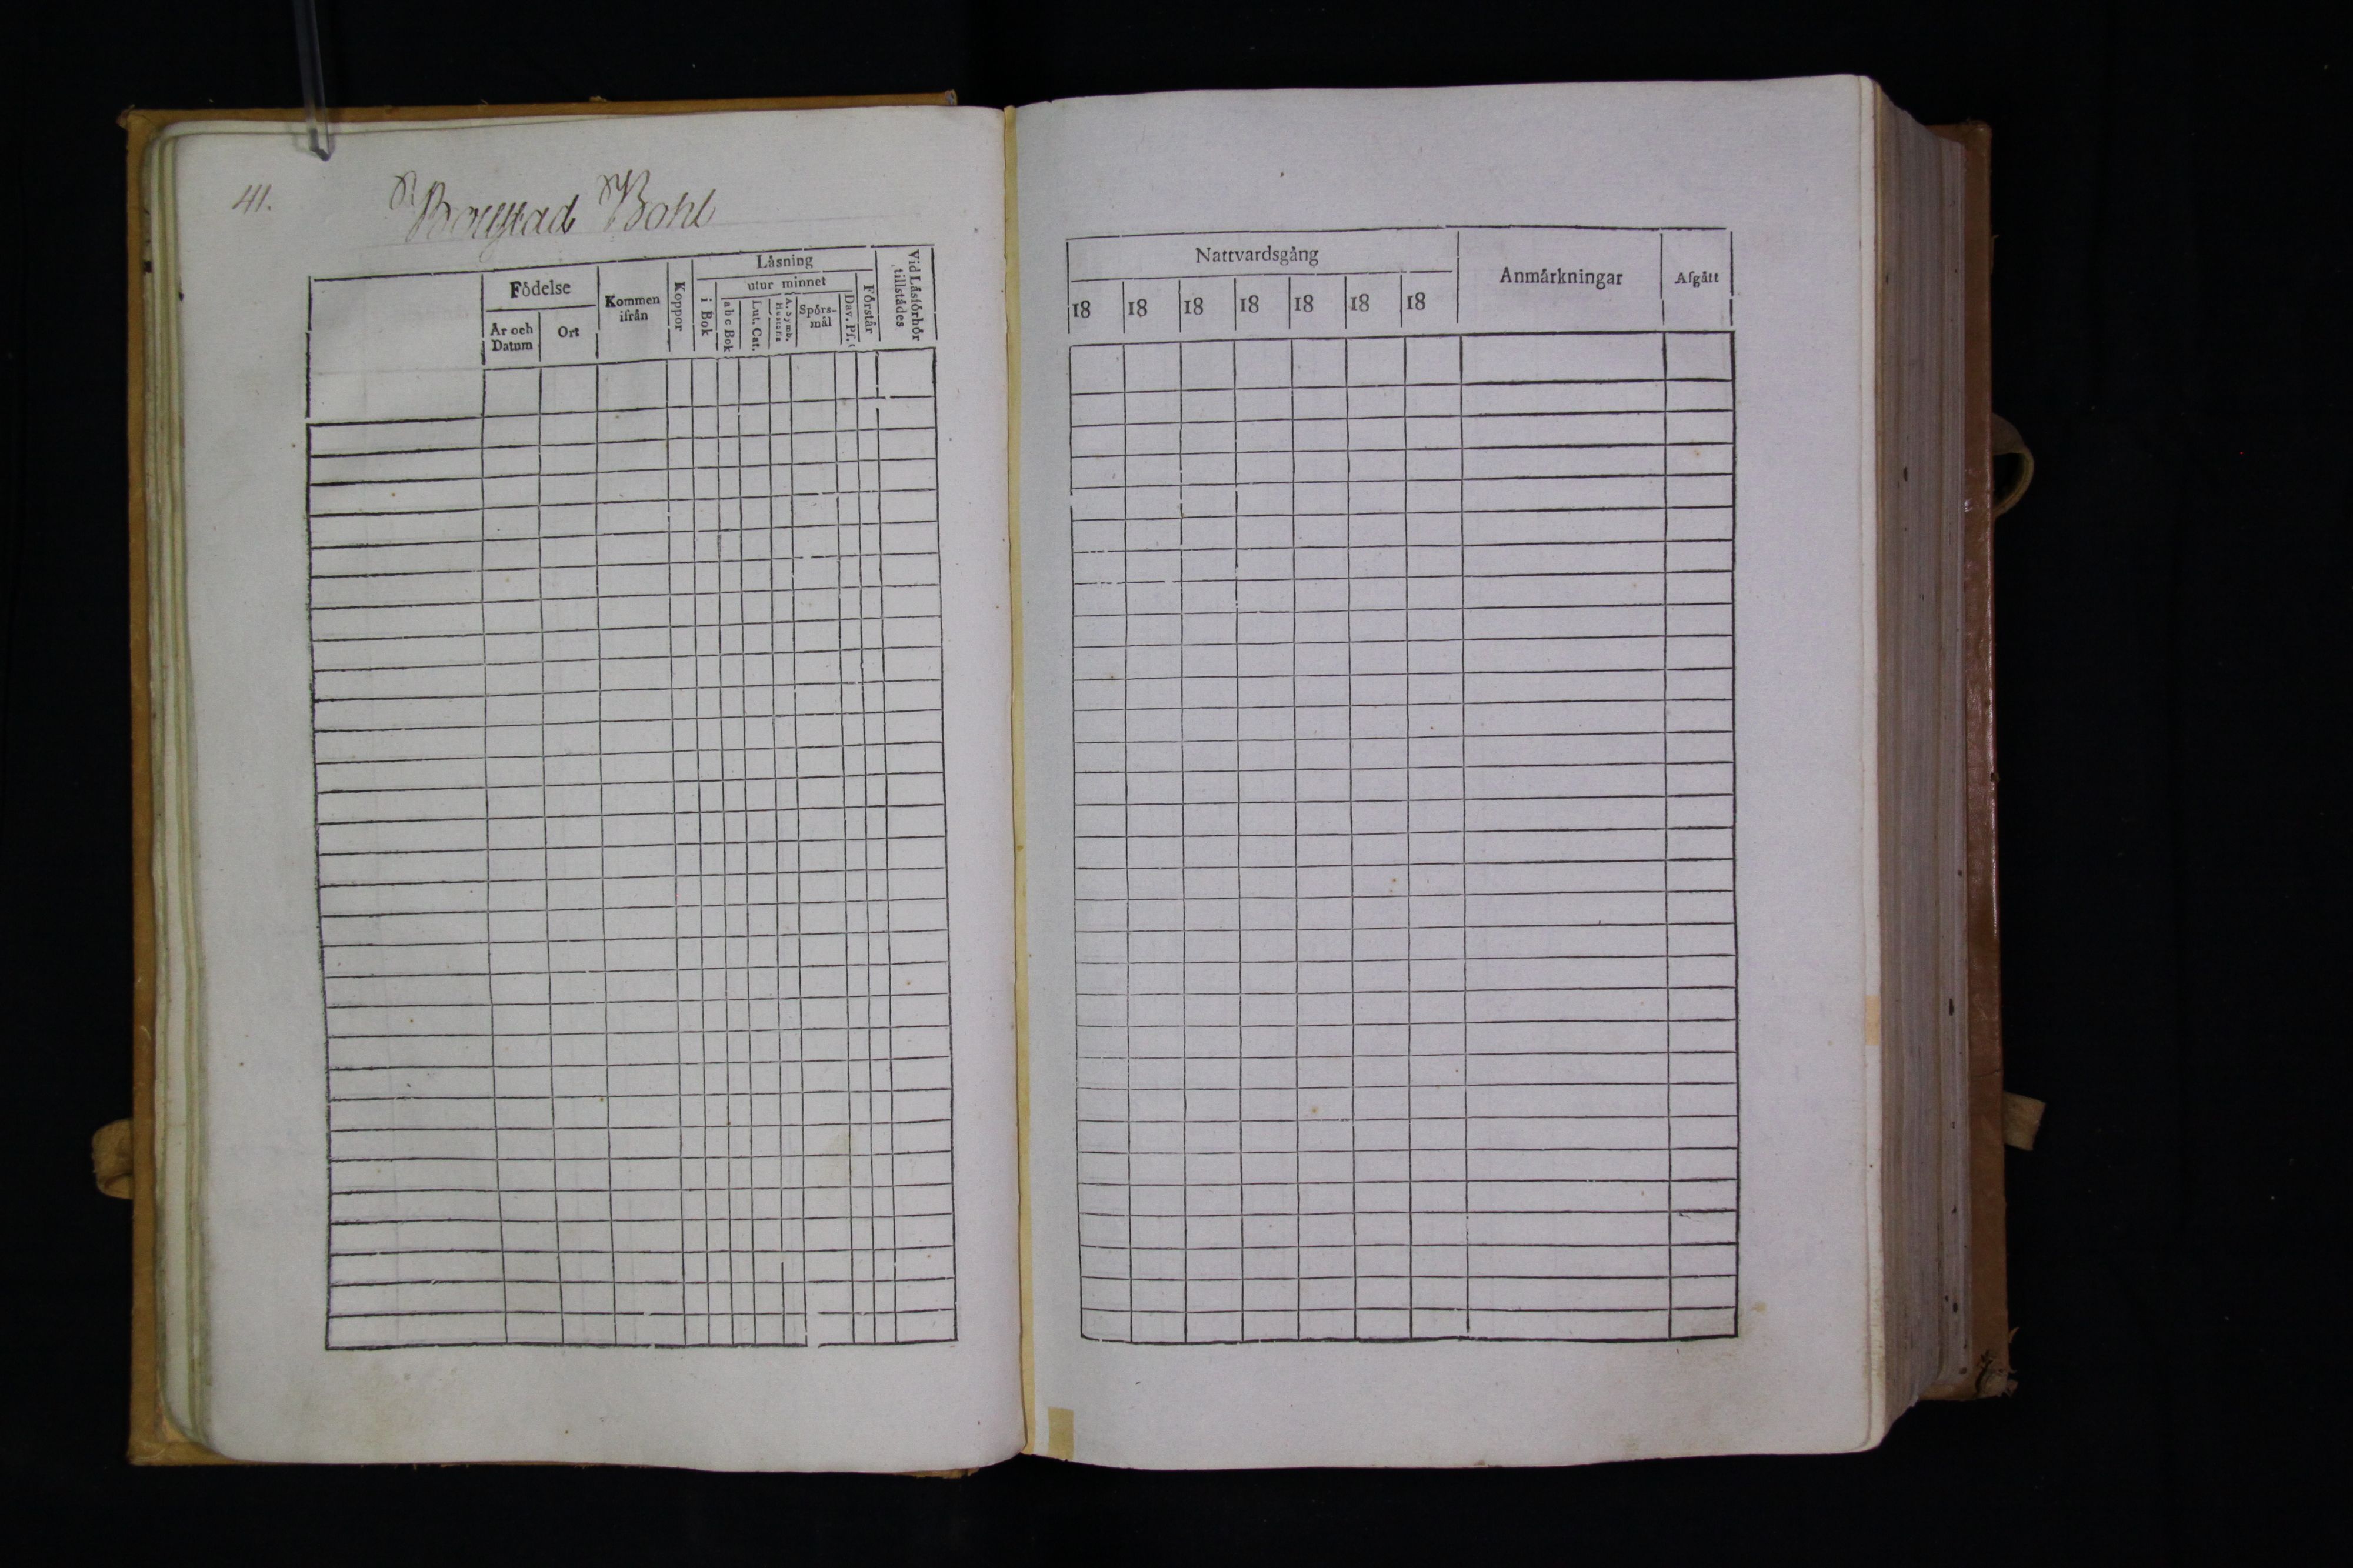 41.
Bovstad Bohl
Födelse
År och Datum
Ort
Kommen ifrån
Koppor
Läsning
utur minnet
i Bok
abc Bok
Lut. Cat.
A. Symb. Hustafla
Spörs-mål
Dav. Ps.
Förstår
Vid Läsförhör tillstädes
Nattvardsgång
18 18 18 18 18 18 18
Anmärkningar
Afgått